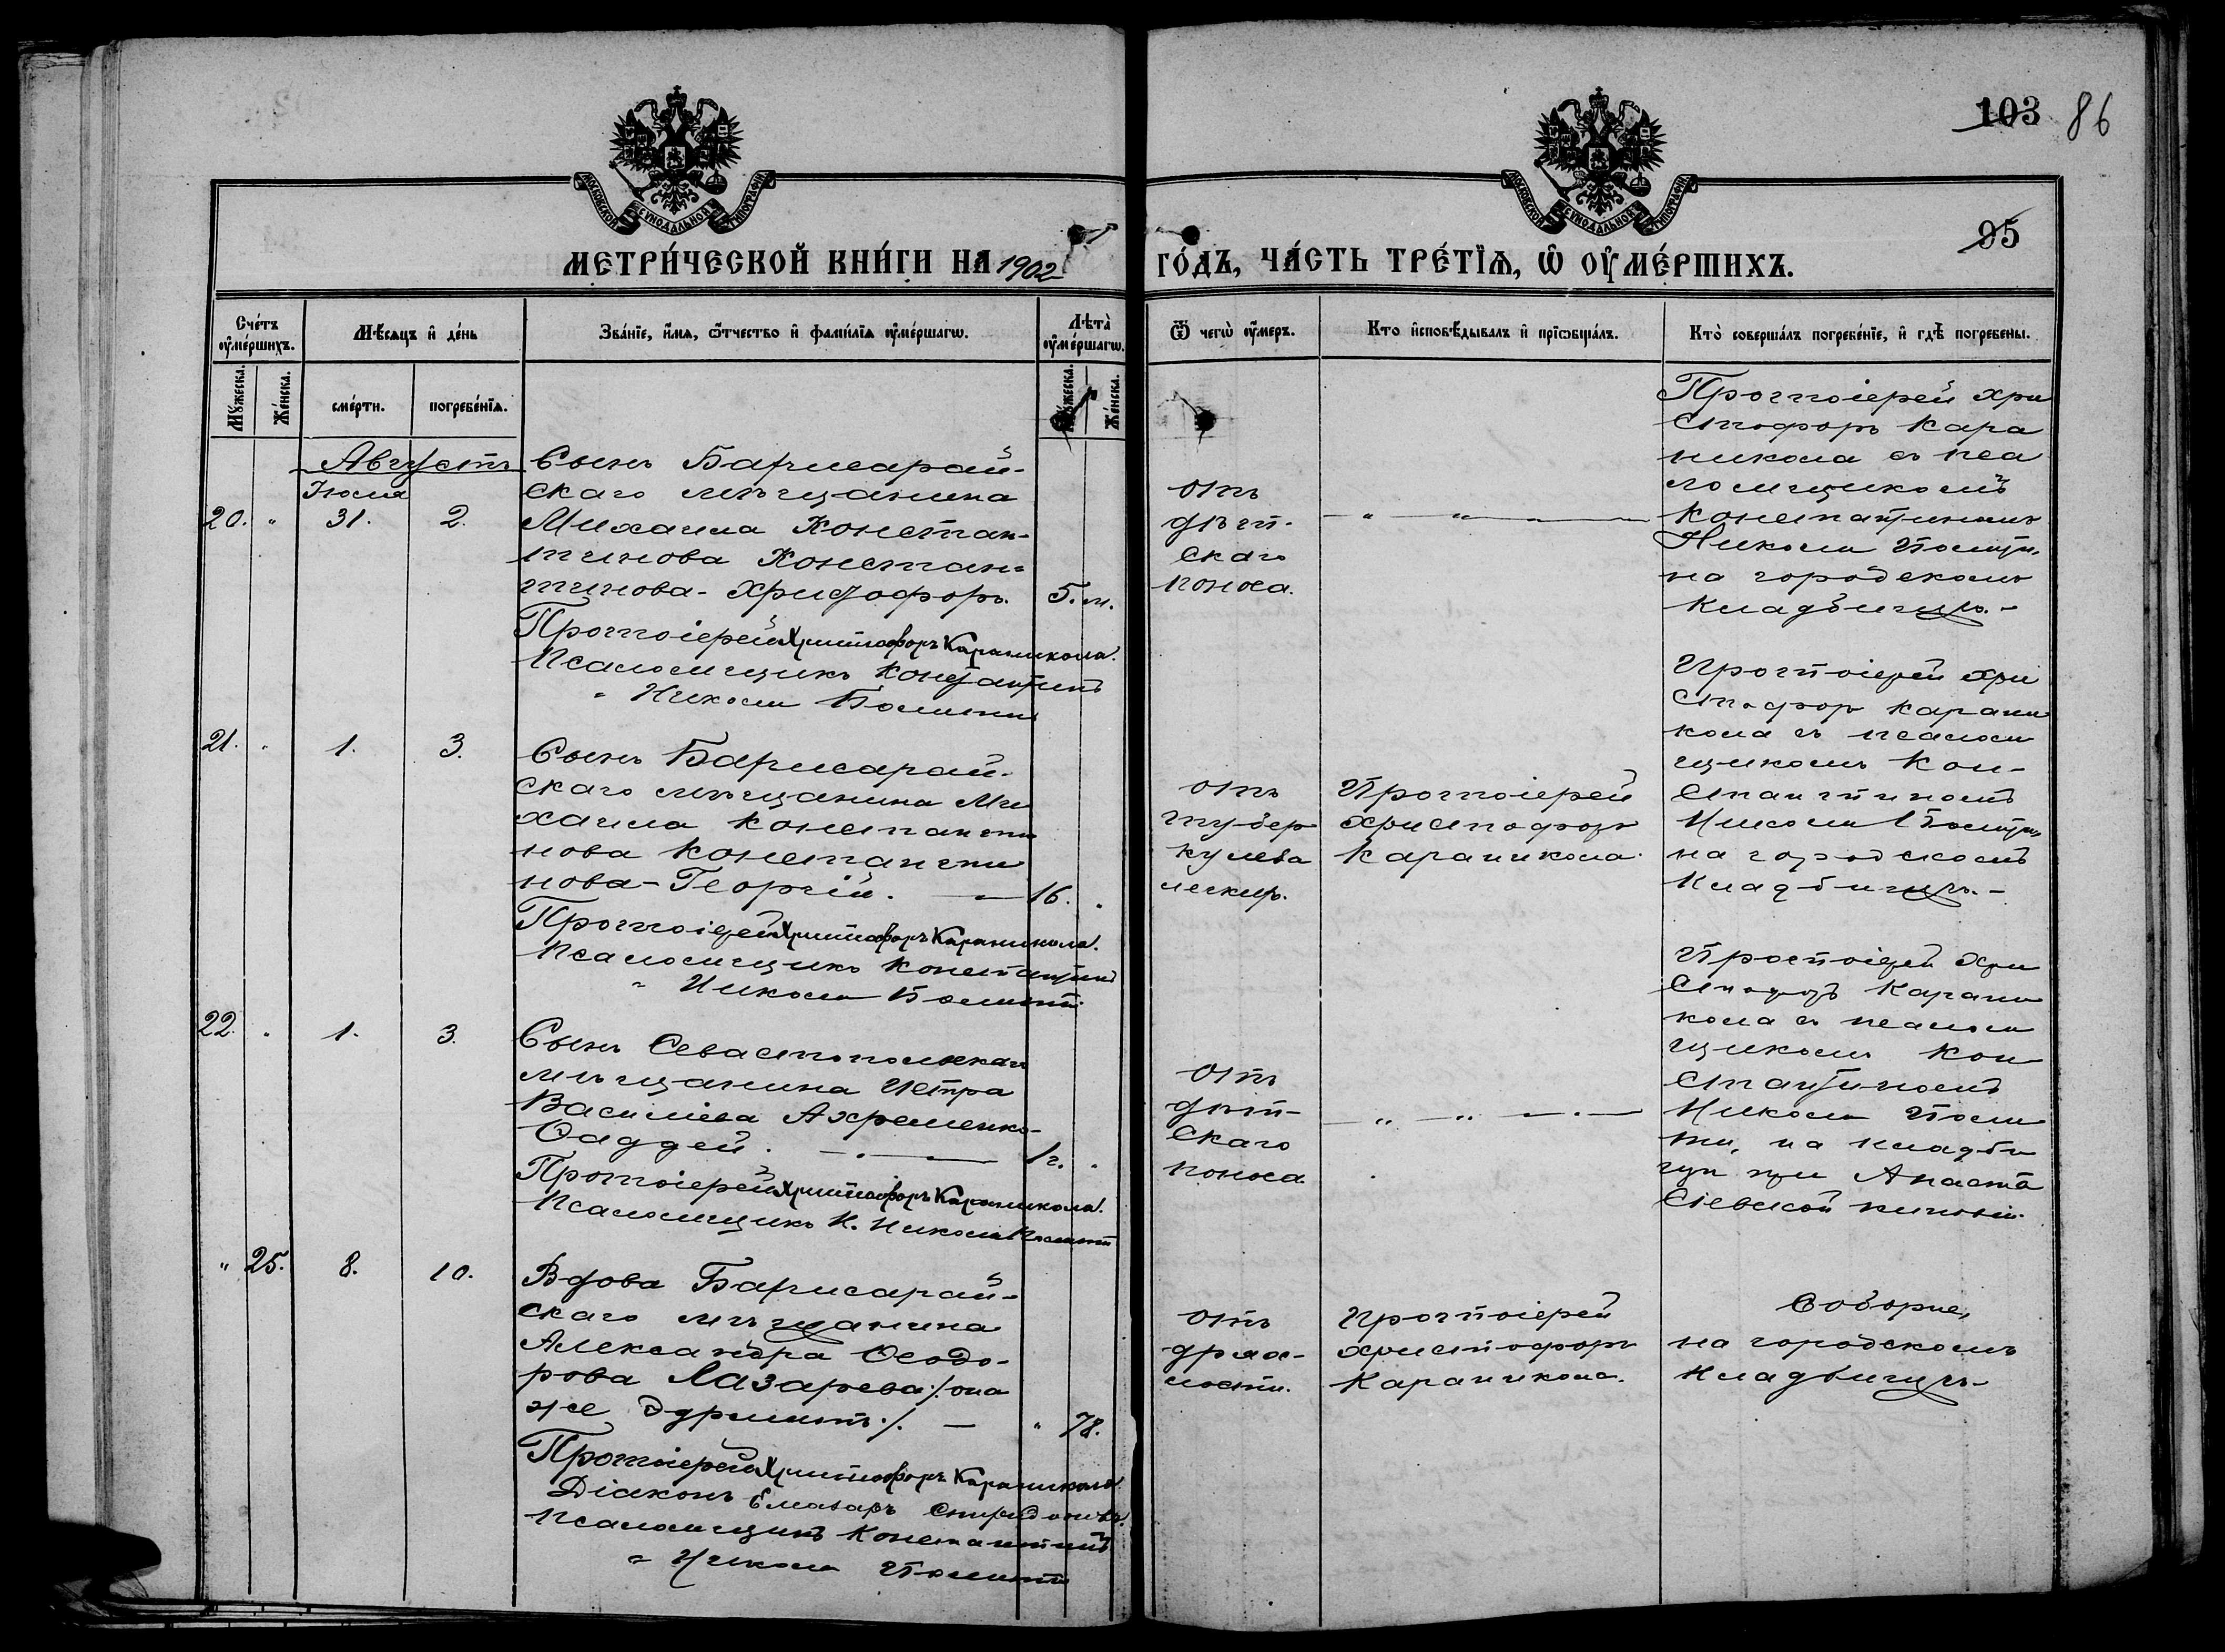 103 86
95
МОСКОВСКОЙ СѴНОДАЛЬНОЙ ТИПОГРАФІИ
МОСКОВСКОЙ СѴНОДАЛЬНОЙ ТИПОГРАФІИ
МЕТРИ́ЧЕСКОЙ КНИ́ГИ НА 1902 ГО́ДЪ, ЧА́СТЬ ТРЕ́ТІѦ, Ѡ ОУ҆МЕ́РШИХЪ.
Сче́тъ оу҆ме́ршихъ.
Мѣ́сяцъ и҆ де́нь
Зва́нїе, и҆́мя, ѻ҆́тчество и҆ фами́лїя оу҆ме́ршагѡ.
Лѣта̀ оу҆ме́ршагѡ.
Ѿ чегѡ̀ оу҆́меръ.
Кто и҆сповѣ́дывалъ и҆ прїѡбща́лъ.
Кто̀ соверша́лъ погребе́нїе, и҆ гдѣ̀ погребены.
Мꙋ́жеска.
Же́нска.
сме́рти.
погребе́нїя.
Мꙋ́жеска.
Же́нска.
Августъ
Іюля
20. " 31. 2.
Сынъ Бахчисарай-
скаго мѣщанина
Михаила Констан-
тинова Констан-
тинова - Христофоръ. 5. м.
Протоіерей Христофоръ Караникола.
Псаломщикъ Константинъ
" Николи
отъ
дѣт-
скаго
поноса.
Протоіерей Хри
стофоръ Кара
никола съ пса
ломщикомъ
Константиномъ
Николи
на городскомъ
кладбищѣ. -
21. " 1. 3.
Сынъ Бахчисарай-
скаго мѣщанина Ми
хаила Константи
нова Константи
нова - Георгій. - 16. "
Протоіерей Христофоръ Караникола.
Псаломщикъ Константинъ
" Николи
отъ
тубер
кулеза
легкихъ.
Протоіерей
Христофоръ
Караникола.
Протоіерей Хри
стофоръ Карани
кола съ псалом
щикомъ Кон-
стантиномъ
Николи
на городскомъ
кладбищѣ. -
22. " 1. 3.
Сынъ Севастопольскаго
мѣщанина Петра
Василіева Ахременко -
Фаддей. - 1 г. "
Протоіерей Христофоръ Караникола.
Псаломщикъ К. Николи
отъ
дѣт-
скаго
поноса
Протоіерей Хри
стофоръ Карани
кола съ псалом
щикомъ Кон
стантиномъ
Николи
на кладби
щѣ при Анаста
сіевской киновіи.
" 25. 8. 10.
Вдова Бахчисарай-
скаго мѣщанина
Александра Ѳеодо-
рова Лазарева /: она
же :/. - " 78.
Протоіерей Христофоръ Караникола.
Діаконъ Елеазаръ Спиридоновъ.
Псаломщикъ Константинъ
" Николи
отъ
дрях-
лости.
Протоіерей
Христофоръ
Караникола.
Соборне,
на городскомъ
кладбищѣ -